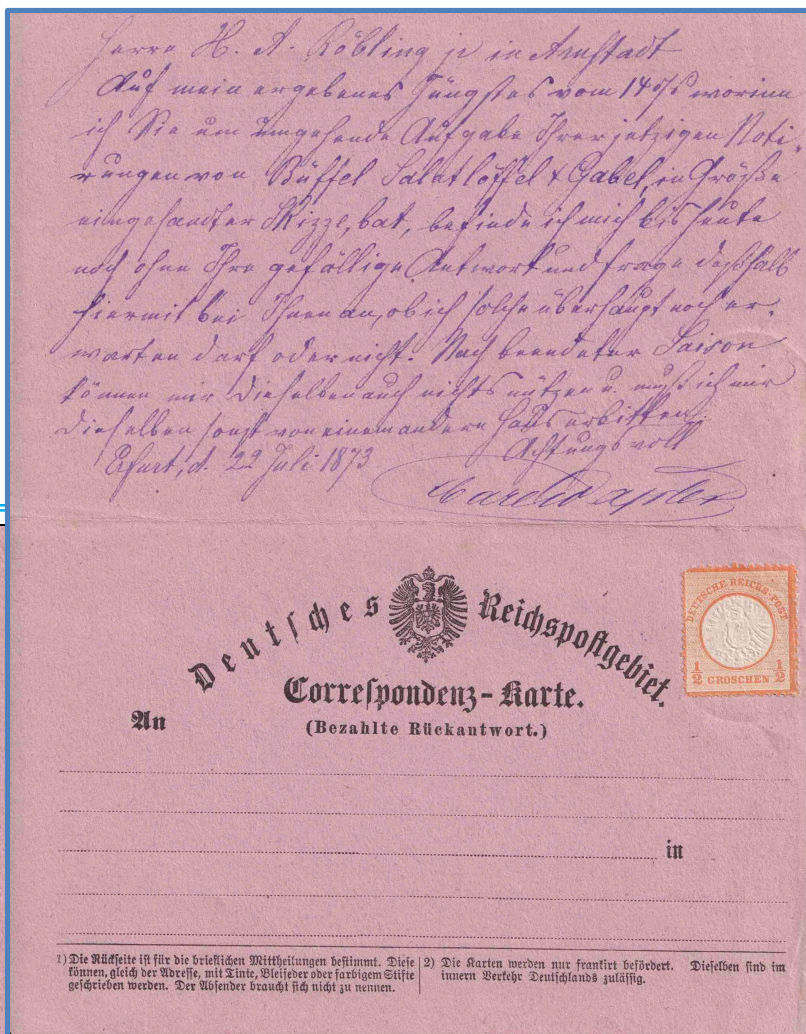 Herrn H. A. Röbling jr in Arnstadt
Auf mein ergebenes Jüngstes vom 14 worinn
ich Sie um umgehende Aufgabe Ihrer jetzigen Noti-
rungen von Büffel Salatlöffel & Gabel, in Größe
eingesandter Skizze, bat, befinde ich mich bis heute
noch ohne Ihre gefällige Antwort und frage deßhalb
hiermit bei Ihnen an, ob ich solche überhaupt noch er-
warten darf oder nicht. Nach beendeter Saison
können mir dieselben auch nichts nützen u. muß ich mir
dieselben sonst von einem andern Haus erbitten.
Achtungsvoll
Erfurt, d. 22 Juli 1873
Deutsches Reichspostgebiet.
Correspondenz-Karte.
(Bezahlte Rückantwort.)
An
in
DEUTSCHE REICHS-POST
1/2 GROSCHEN 1/2
1) Die Rückseite ist für die brieflichen Mittheilungen bestimmt. Diese
können, gleich der Adresse, mit Tinte, Bleifeder oder farbigem Stifte
geschrieben werden. Der Absender braucht sich nicht zu nennen.
2) Die Karten werden nur frankirt befördert. Dieselben sind im
innern Verkehr Deutschlands zulässig.